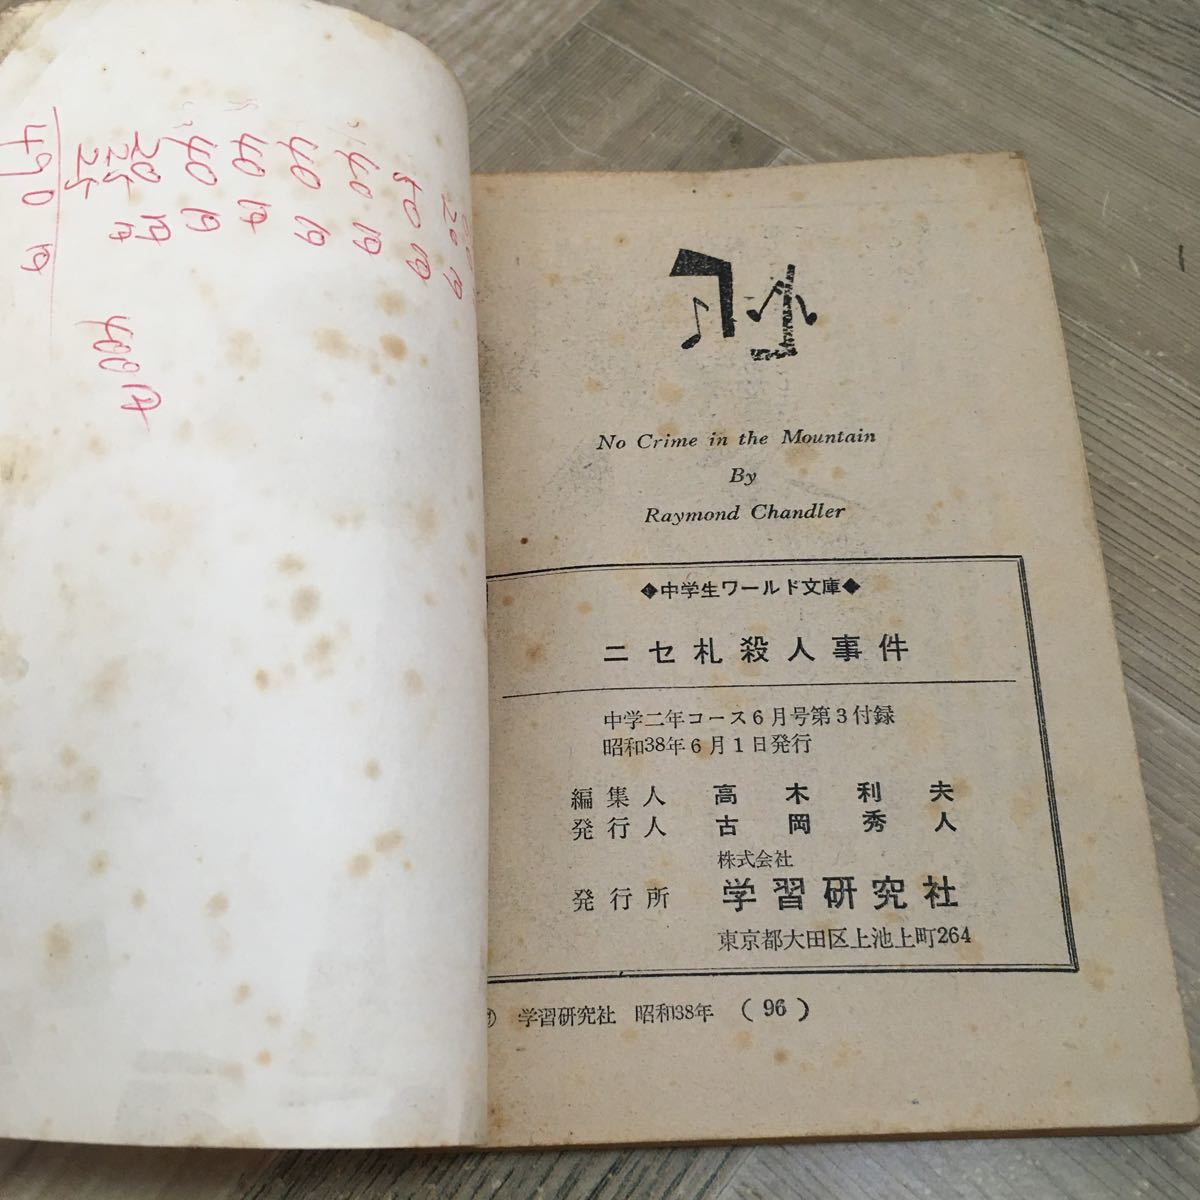 40
40
40
40
40
20
25
25
490
400円
No Crime in the Mountain
By
Raymond Chandler
◆中学生ワールド文庫◆
ニセ札殺人事件
中学二年コース6月号第3付録
昭和38年6月1日発行
編集人 高木利夫
発行人 古岡秀人
株式会社
発行所 学習研究社
東京都大田区上池上町264
学習研究社 昭和38年 (96)